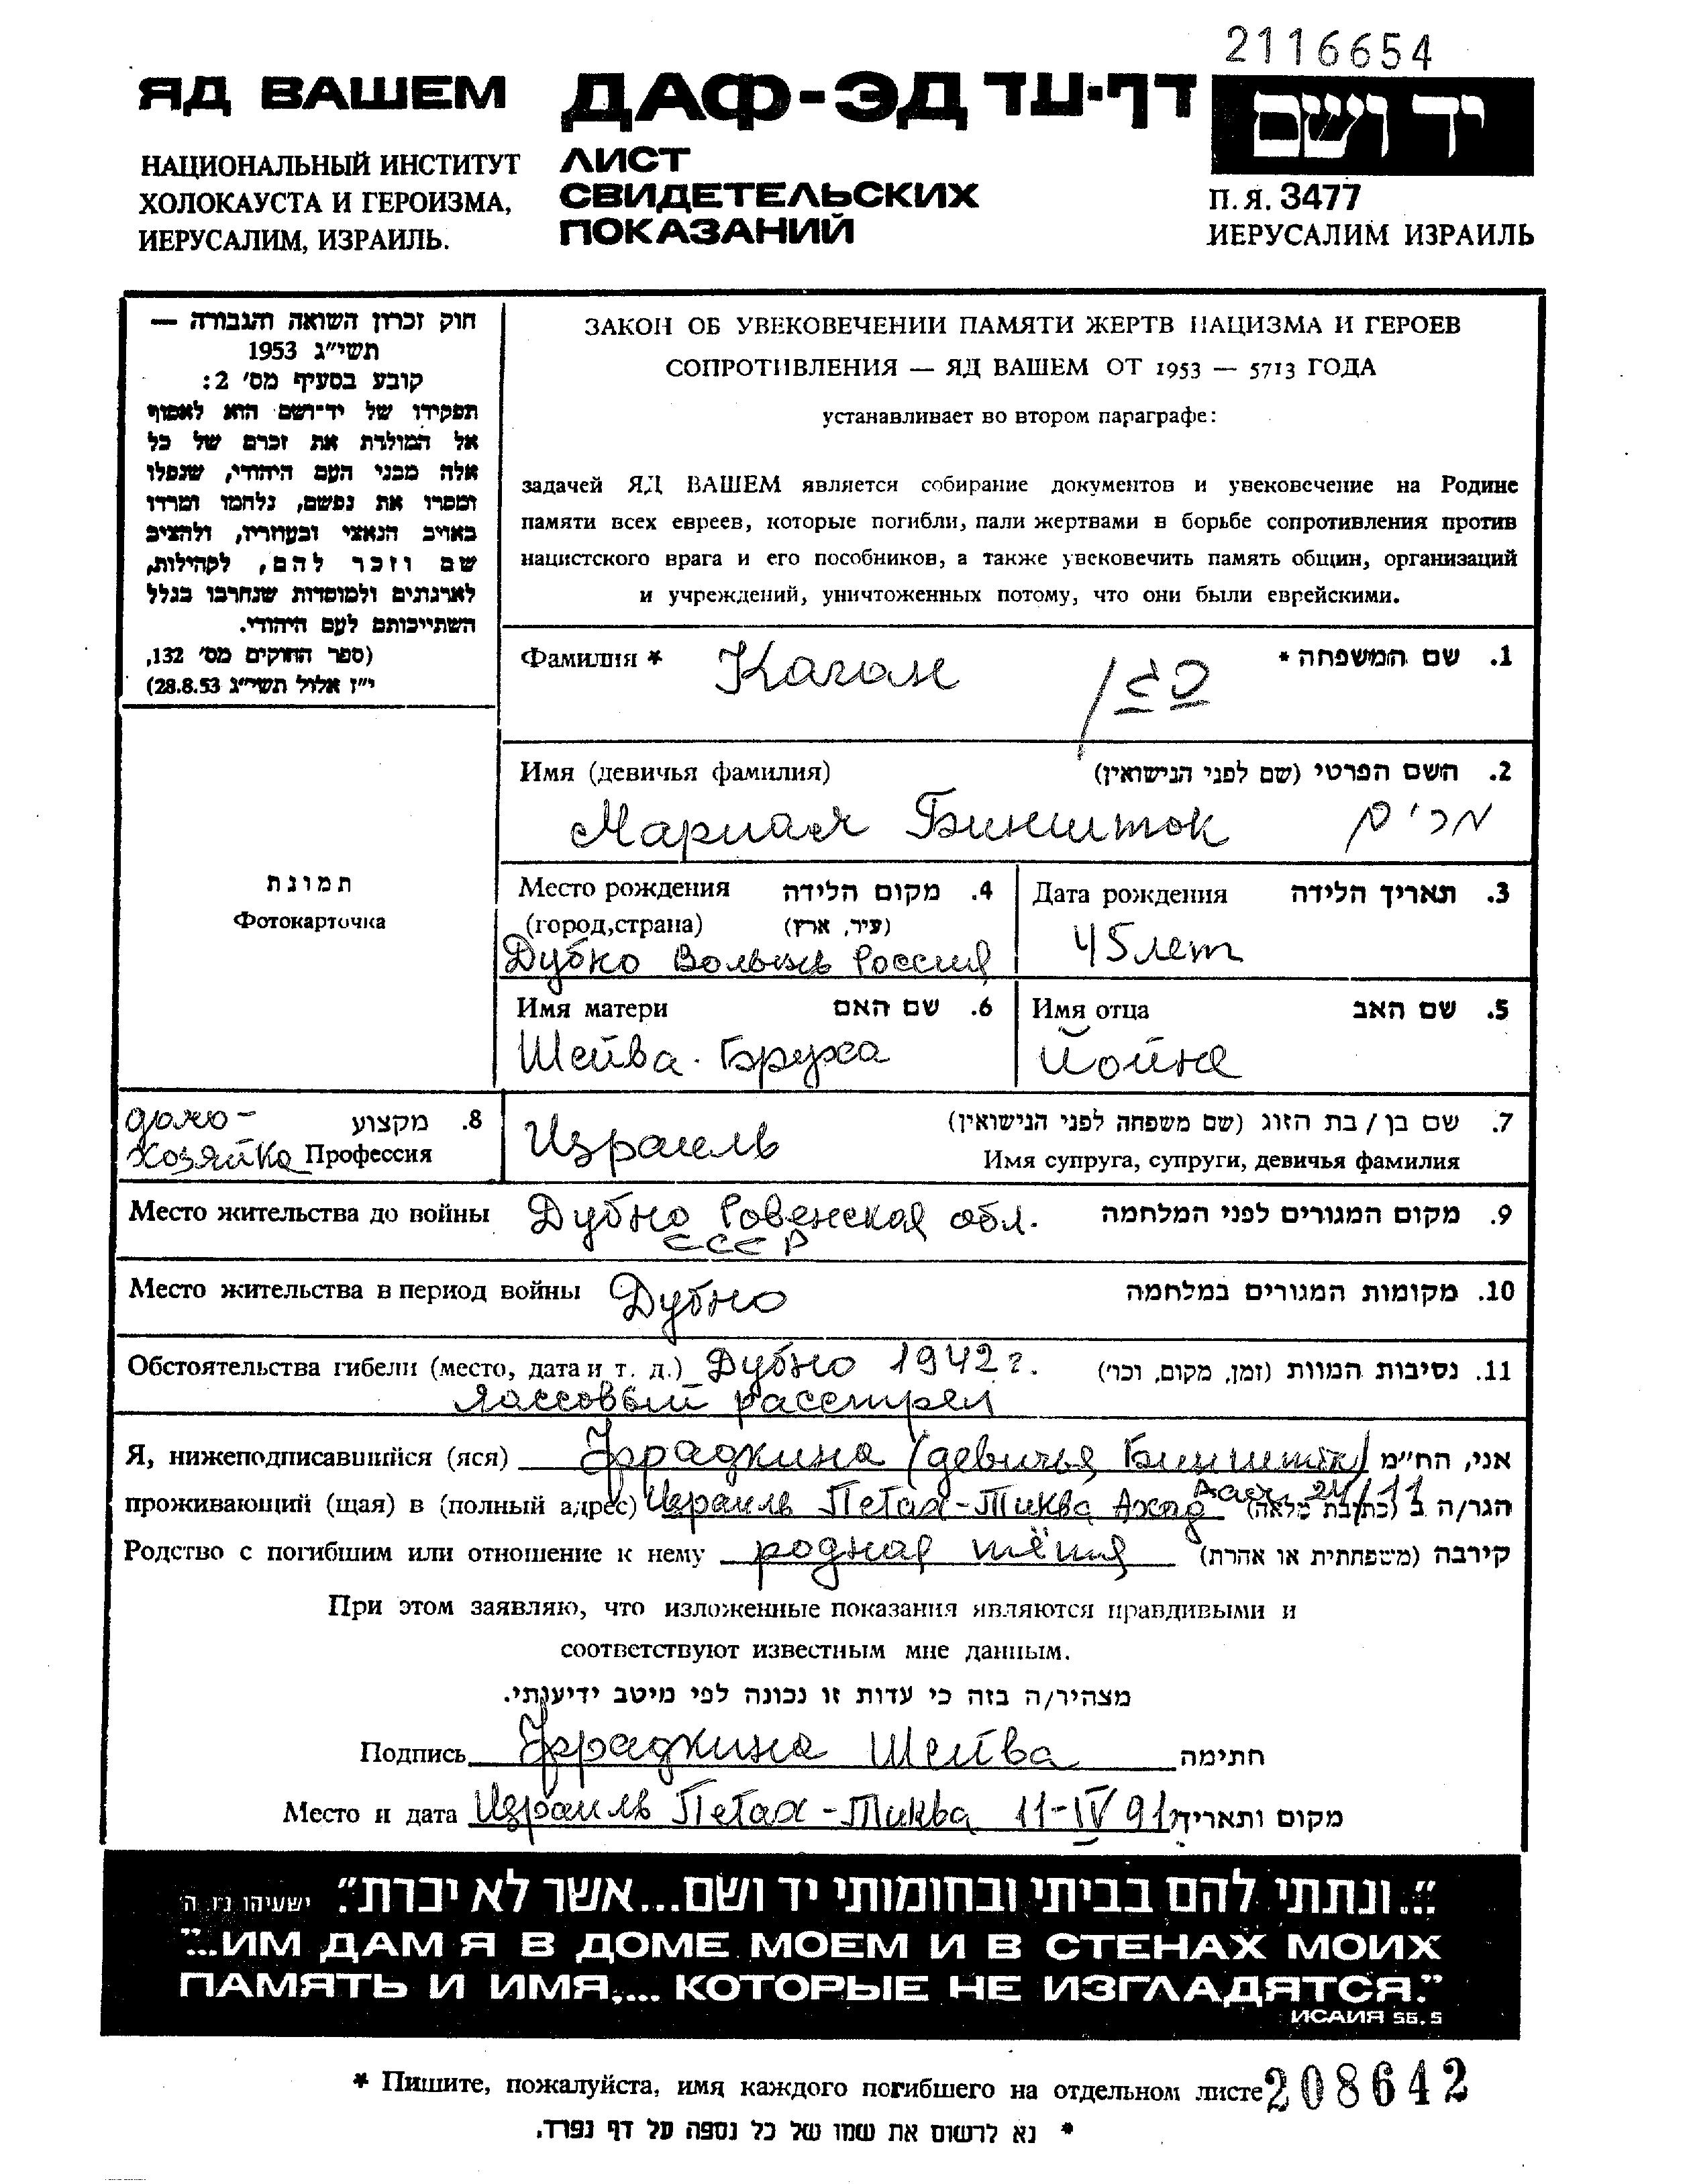 2116654
ЯД ВАШЕМ
НАЦИОНАЛЬНЫЙ ИНСТИТУТ
ХОЛОКАУСТА И ГЕРОИЗМА,
ИЕРУСАЛИМ, ИЗРАИЛЬ.
ДАФ-ЭД דף-עד
ЛИСТ
СВИДЕТЕЛЬСКИХ
ПОКАЗАНИЙ
יד ושם
П.Я. 3477
ИЕРУСАЛИМ ИЗРАИЛЬ
חוק זכרון השואה והגבורה —
תשי"ג 1953
קובע בסעיף מס' 2:
תפקידו של יד-ושם הוא לאסוף
אל המולדת את זכרם של כל
אלה מבני העם היהודי, שנפלו
ומסרו את נפשם, נלחמו ומרדו
באויב הנאצי ובעוזריו, ולהציב
שם וזכר להם, לקהילות,
לארגונים ולמוסדות שנחרבו בגלל
השתייכותם לעם היהודי.
(ספר החוקים מס' 132,
י"ז אלול תשי"ג 28.8.53)
ЗАКОН ОБ УВЕКОВЕЧЕНИИ ПАМЯТИ ЖЕРТВ НАЦИЗМА И ГЕРОЕВ
СОПРОТИВЛЕНИЯ — ЯД ВАШЕМ ОТ 1953 — 5713 ГОДА
устанавливает во втором параграфе:
задачей ЯД ВАШЕМ является собирание документов и увековечение на Родине
памяти всех евреев, которые погибли, пали жертвами в борьбе сопротивления против
нацистского врага и его пособников, а также увековечить память общин, организаций
и учреждений, уничтоженных потому, что они были еврейскими.
Фамилия * Каган כגן 1. שם המשפחה *
Имя (девичья фамилия) 2. השם הפרטי (שם לפני הנישואין)
Мариам Биншток מרים
תמונת
Фотокарточка
Место рождения 4. מקום הלידה
(город,страна) (עיר, ארץ)
Дубно Волынь Россия
Дата рождения 3. תאריך הלידה
45 лет
Имя матери 6. שם האם
Шейва-Бруха
Имя отца 5. שם האב
Йойне
домо-
хозяйка
8. מקצוע
Профессия
Израиль
7. שם בן / בת הזוג (שם משפחה לפני הנישואין)
Имя супруга, супруги, девичья фамилия
Место жительства до войны Дубно Ровенская обл. 9. מקום המגורים לפני המלחמה
СССР
Место жительства в период войны Дубно 10. מקומות המגורים במלחמה
Обстоятельства гибели (место, дата и т. д.) Дубно 1942 г. 11. נסיבות המוות (זמן, מקום, וכו')
массовый расстрел
Я, нижеподписавшийся (яся) Фрадкина (девичья Биншток) אני, הח"מ
проживающий (щая) в (полный адрес) Израиль Петах-Тиква Ахад Хаам 24/11 הגר/ה ב (כתובת מלאה)
Родство с погибшим или отношение к нему родная тётя קירבה (משפחתית או אחרת)
При этом заявляю, что изложенные показания являются правдивыми и
соответствуют известным мне данным.
מצהיר/ה בזה כי עדות זו נכונה לפי מיטב ידיעותי.
Подпись Фрадкина Шейва חתימה
Место и дата Израиль Петах-Тиква 11-IV 91 מקום ותאריך
"...ונתתי להם בביתי ובחומותי יד ושם...אשר לא יכרת". ישעיהו נ"ו ה'
"...ИМ ДАМ Я В ДОМЕ МОЕМ И В СТЕНАХ МОИХ
ПАМЯТЬ И ИМЯ,... КОТОРЫЕ НЕ ИЗГЛАДЯТСЯ."
ИСАИЯ 56, 5
* Пишите, пожалуйста, имя каждого погибшего на отдельном листе 208642
* נא לרשום את שמו של כל נספה על דף נפרד.